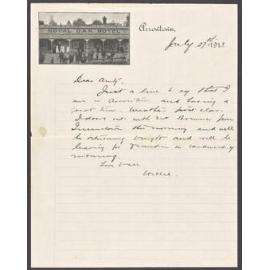 ROYAL OAK HOTEL
Arrowtown,
July 27th 1923
Dear Aunty.
Just a line to say that I
am in Arrowtown and having a
good time. Weather first class.
I down out with Mr from
Queenstown this morning and will
be returning tonight and will be
leaving for Dunedin on Wednesday
morning.
Love to all
Willie.